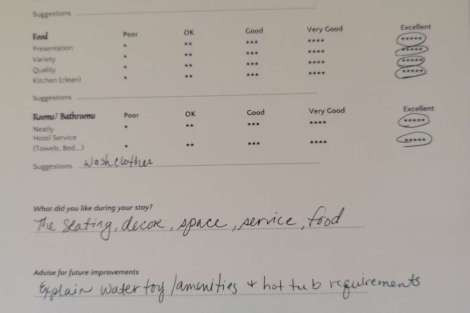 Suggestions
Food Poor OK Good Very Good Excellent
Presentation * ** *** **** *****
Variety * ** *** **** *****
Quality * ** *** **** *****
Kitchen (clean) * ** *** **** *****
Suggestions
Rooms/ Bathrooms Poor OK Good Very Good Excellent
Neatly * ** *** **** *****
Hotel Service
(Towels, Bed...) * ** *** **** *****
Suggestions Washclothes
What did you like during your stay?
The seating, decor, space, service, food
Advise for future improvements
Explain water toy /amenities + hot tub requirements